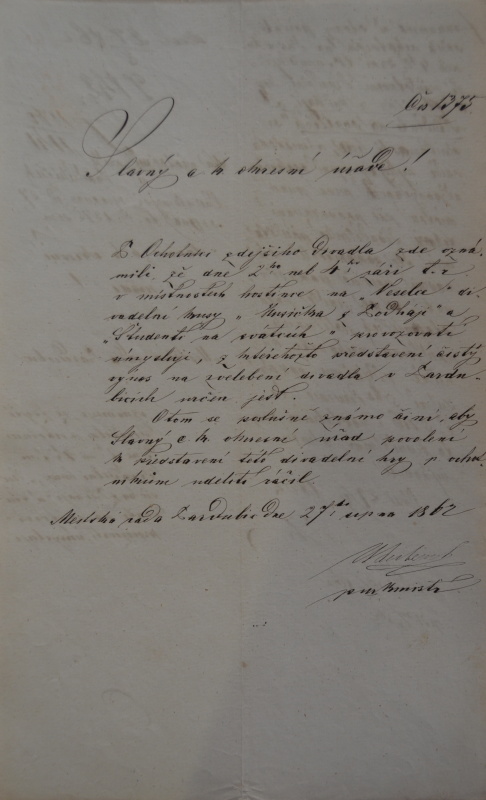 Čís 1375
Slavný c k okresní úřade!
P. Ochotníci zdejšího divadla zde ozná-
mili že dne 2ho neb 4ho září t. r
v místnostech hostince na „Veselce" di-
vadelní kusy „ z " a
„Studenti na svátcích" provozovati
umyslují, z kteréhožto představení čistý
výnos na zvelebení divadla v
určen jest.
Otom se poslušně známo činí, aby
Slavný c k okresní úřad povolení
k představení této divadelní hry p ocho-
tníkům uděliti ráčil
Městská rada dne 27ho srpna 1862